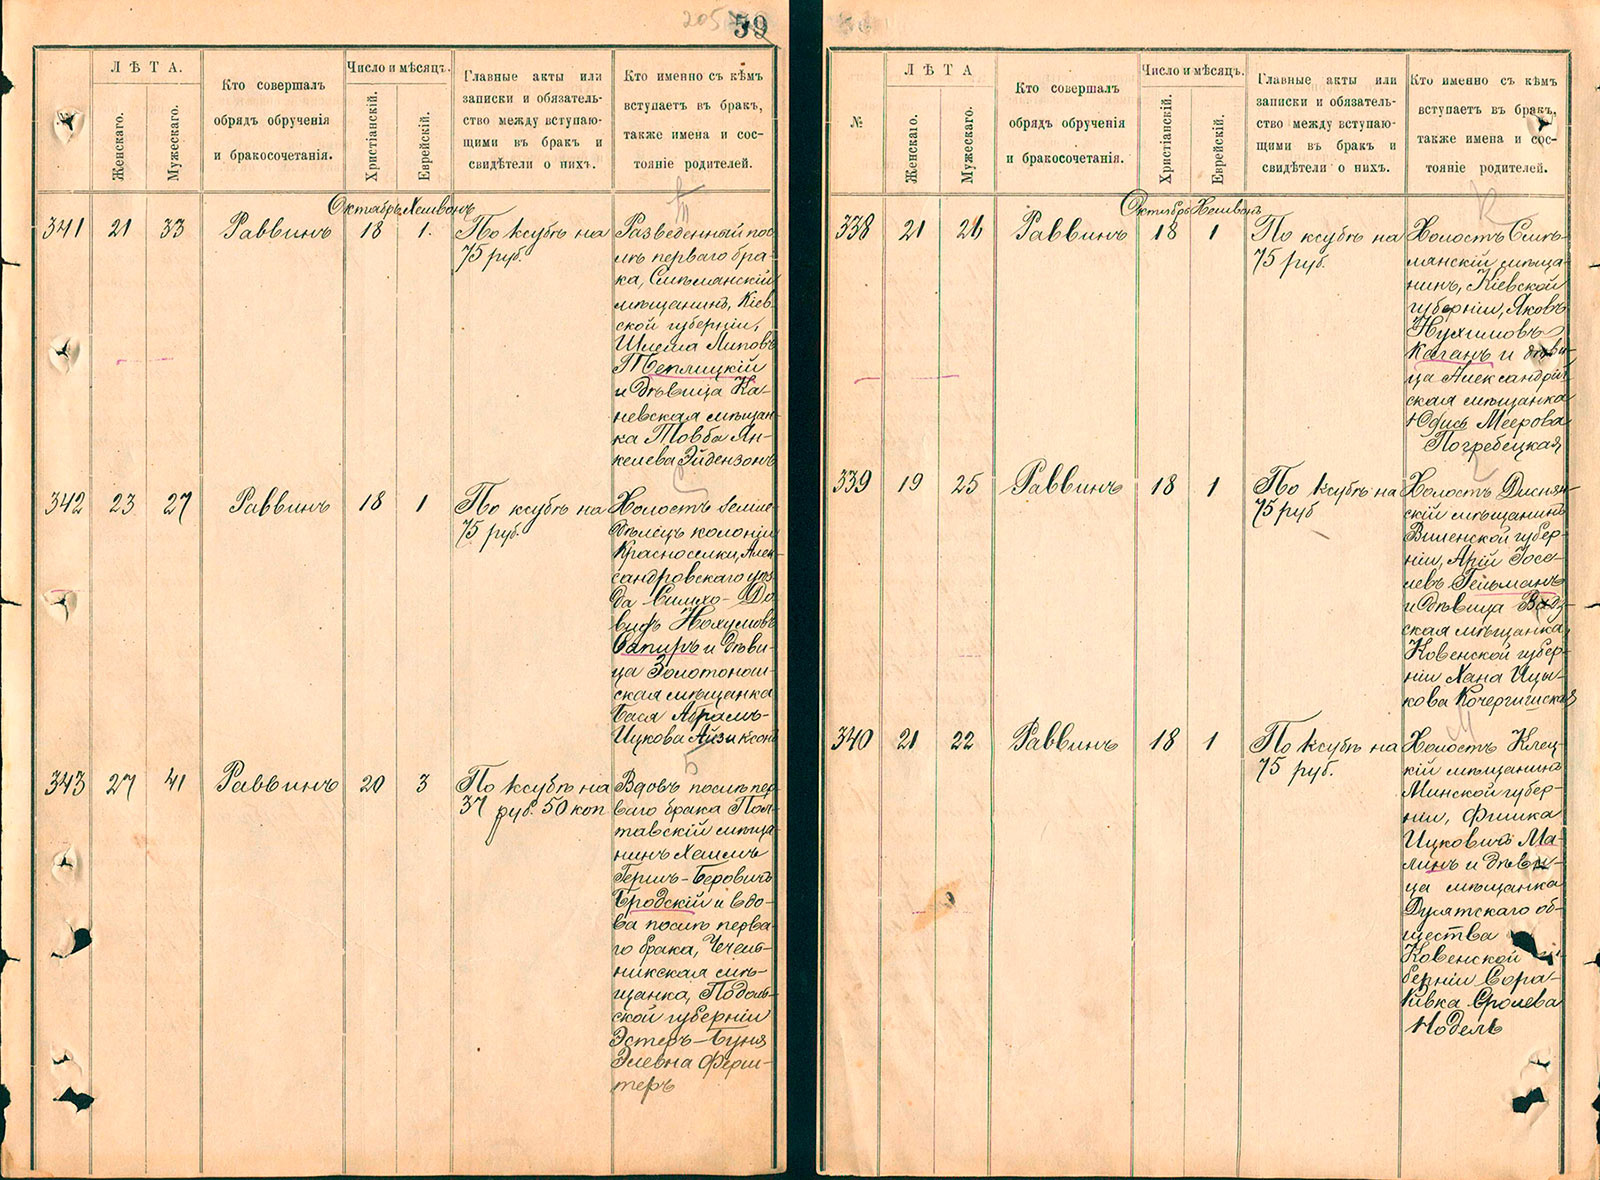 205
59
ЛѢТА.
Женскаго.
Мужескаго.
Кто совершалъ
обрядъ обрученія
и бракосочетанія.
Число и мѣсяцъ.
Христіанскій.
Еврейскій.
Главные акты или
записки и обязатель-
ство между вступаю-
щими въ бракъ и
свидѣтели о нихъ.
Кто именно съ кѣмъ
вступаетъ въ бракъ,
также имена и сос-
тояніе родителей.
Октябрь Хешвонъ
341 21 33 Раввинъ 18 1.
По ксубѣ на
75 руб.
Разведенный пос-
лѣ перваго бра-
ка, Смѣлянскій
мѣщанинъ, Кіев-
ской губерніи,
Шлема Липовъ
Теплицкій
и дѣвица Ка-
невская мѣщан-
ка Товба Ян-
келева Эйдензонъ
342 23 27 Раввинъ 18 1
По ксубѣ на
75 руб.
Холостъ земле-
дѣлецъ колоніи
Красноселки, Алек-
сандровскаго уѣз-
да Симхо-До-
видъ Нохумовъ
Сапиръ и дѣви-
ца Золотонош-
ская мѣщанка
Бася Абрамъ-
Ицкова Айзиксонъ
343 27 41 Раввинъ 20 3
По ксубѣ на
37 руб. 50 коп
Вдовъ послѣ пер-
ваго брака Пол-
тавскій мѣща-
нинъ Хаимъ
Гершъ-Беровичъ
Бродскій и вдо-
ва послѣ перва-
го брака, Чечель-
никская мѣ-
щанка, Подоль-
ской губерніи
Эстеръ-Буня
Элевна Ферш-
теръ
№
ЛѢТА
Женскаго.
Мужескаго.
Кто совершалъ
обрядъ обрученія
и бракосочетанія.
Число и мѣсяцъ.
Христіанскій.
Еврейскій.
Главные акты или
записки и обязатель-
ство между вступаю-
щими въ бракъ и
свидѣтели о нихъ.
Кто именно съ кѣмъ
вступаетъ въ бракъ,
также имена и сос-
тояніе родителей.
К
Октябрь Хешвонъ
338 21 26 Раввинъ 18 1
По ксубѣ на
75 руб.
Холостъ Смѣ-
лянскій мѣща-
нинъ, Кіевской
губерніи, Яковъ
Нухимовъ
Каганъ и дѣви-
ца Александрій-
ская мѣщанка
Юдись Меерова
Погребецкая
339 19 25 Раввинъ 18 1
По ксубѣ на
75 руб
Холостъ Диснян-
скій мѣщанинъ
Виленской губер-
ніи, Арій Іосе-
левъ Гельманъ
и дѣвица
ская мѣщанка,
Ковенской губер-
ніи Хана Ицы-
кова Кочергишская
М
340 21 22 Раввинъ 18 1
По ксубѣ на
75 руб.
Холостъ Клец-
кій мѣщанинъ
Минской губер-
ніи, Фишка
Ицковичъ Ма-
линъ и дѣви-
ца мѣщанка
Дусятскаго об-
щества
Ковенской гу-
берніи Сора-
Ривка Сролева
Нодель